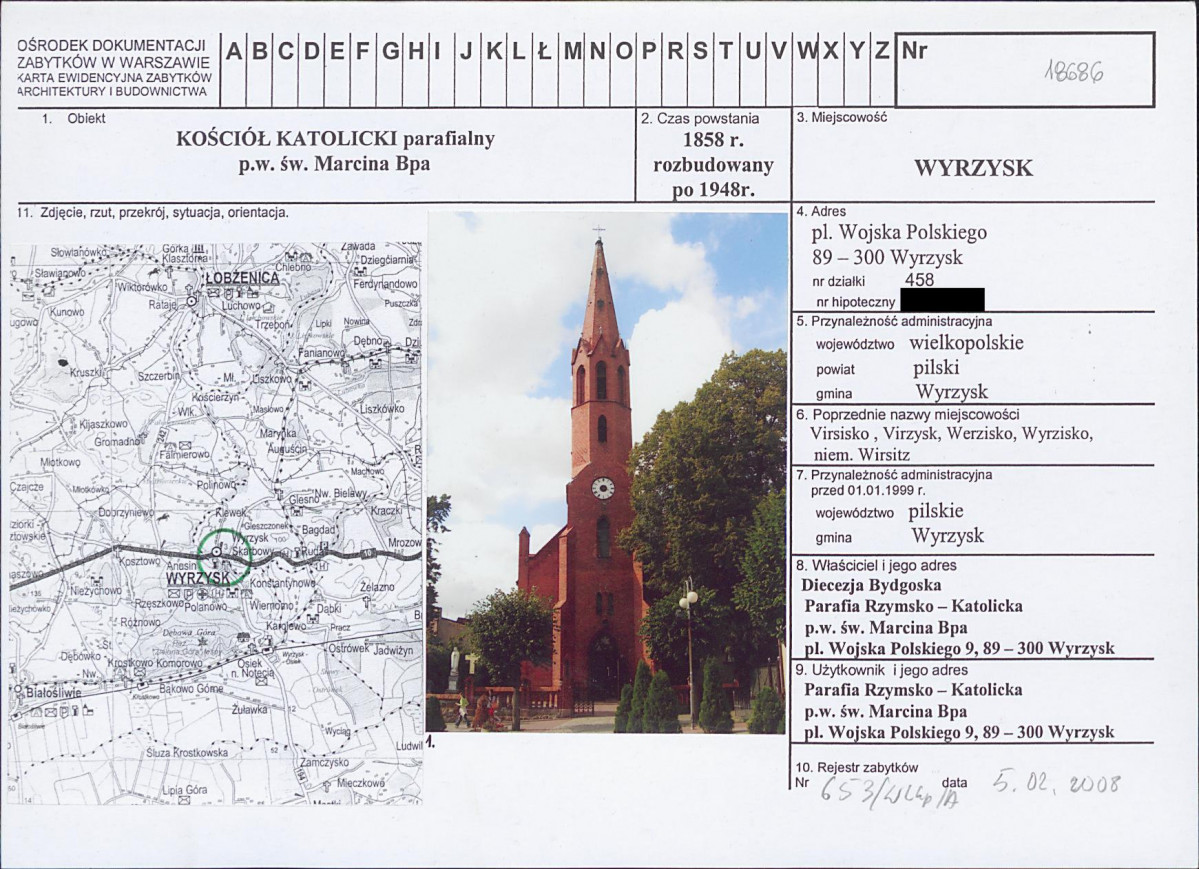 OŚRODEK DOKUMENTACJI
ZABYTKÓW W WARSZAWIE
KARTA EWIDENCYJNA ZABYTKÓW
ARCHITEKTURY I BUDOWNICTWA
A B C D E F G H I J K L Ł M N O P R S T U V W X Y Z
Nr
18686
1. Obiekt
KOŚCIÓŁ KATOLICKI parafialny
p.w. św. Marcina Bpa
2. Czas powstania
1858 r.
rozbudowany
po 1948r.
3. Miejscowość
WYRZYSK
11. Zdjęcie, rzut, przekrój, sytuacja, orientacja.
Słowianówko
Górka
Klasztorna
Zawada
Dziegciarnia
Sławianowo
Chlebno
ŁOBŻENICA
Wiktorówko
Ferdynandowo
Rataje
Luchowo
Kunowo
Trzeboń
Lipki
Nowina
Dębno
Fanianowo
Kruszki
Szczerbin
Mł.
Liszkowo
Kościerzyn
Wlk.
Masłowo
Liszkówko
Kijaszkowo
Gromadno
241
Marynka
Falmierowo
Auguścin
Miotkowo
Machowo
Czajcze
Młotkówko
Polinowo
Nw. Bielawy
Glesno
Dobrzyniewo
Klewek
Kraczki
Gleszczonek
Bagdad
Wyrzysk
Skarbowy
Ruda
Mrozowo
10
Kosztowo
Anusin
WYRZYSK
Konstantynowo
135
Niezychowo
Żelazno
Rzęszkowo
Polanowo
Wiernomo
Dąbki
Różnowo
Karolewo
Pracz
Dębowa Góra
Dębówko
St.
Nw.
Krostkowo
Komorowo
Wyrzysk-
Osiek
Ostrówek
Jadwiżyn
Osiek
n. Notecią
Białośliwie
Bąkowo Górne
Żuławka
12
Wyciąg
Śluza Krostkowska
52
Zamczysko
194
Lipia Góra
Mieczkowo
1.
4. Adres
pl. Wojska Polskiego
89 – 300 Wyrzysk
nr działki 458
nr hipoteczny
5. Przynależność administracyjna
województwo wielkopolskie
powiat pilski
gmina Wyrzysk
6. Poprzednie nazwy miejscowości
Virsisko , Virzysk, Werzisko, Wyrzisko,
niem. Wirsitz
7. Przynależność administracyjna
przed 01.01.1999 r.
województwo pilskie
gmina Wyrzysk
8. Właściciel i jego adres
Diecezja Bydgoska
Parafia Rzymsko – Katolicka
p.w. św. Marcina Bpa
pl. Wojska Polskiego 9, 89 – 300 Wyrzysk
9. Użytkownik i jego adres
Parafia Rzymsko – Katolicka
p.w. św. Marcina Bpa
pl. Wojska Polskiego 9, 89 – 300 Wyrzysk
10. Rejestr zabytków
Nr 653/Wlkp/A data 5.02.2008